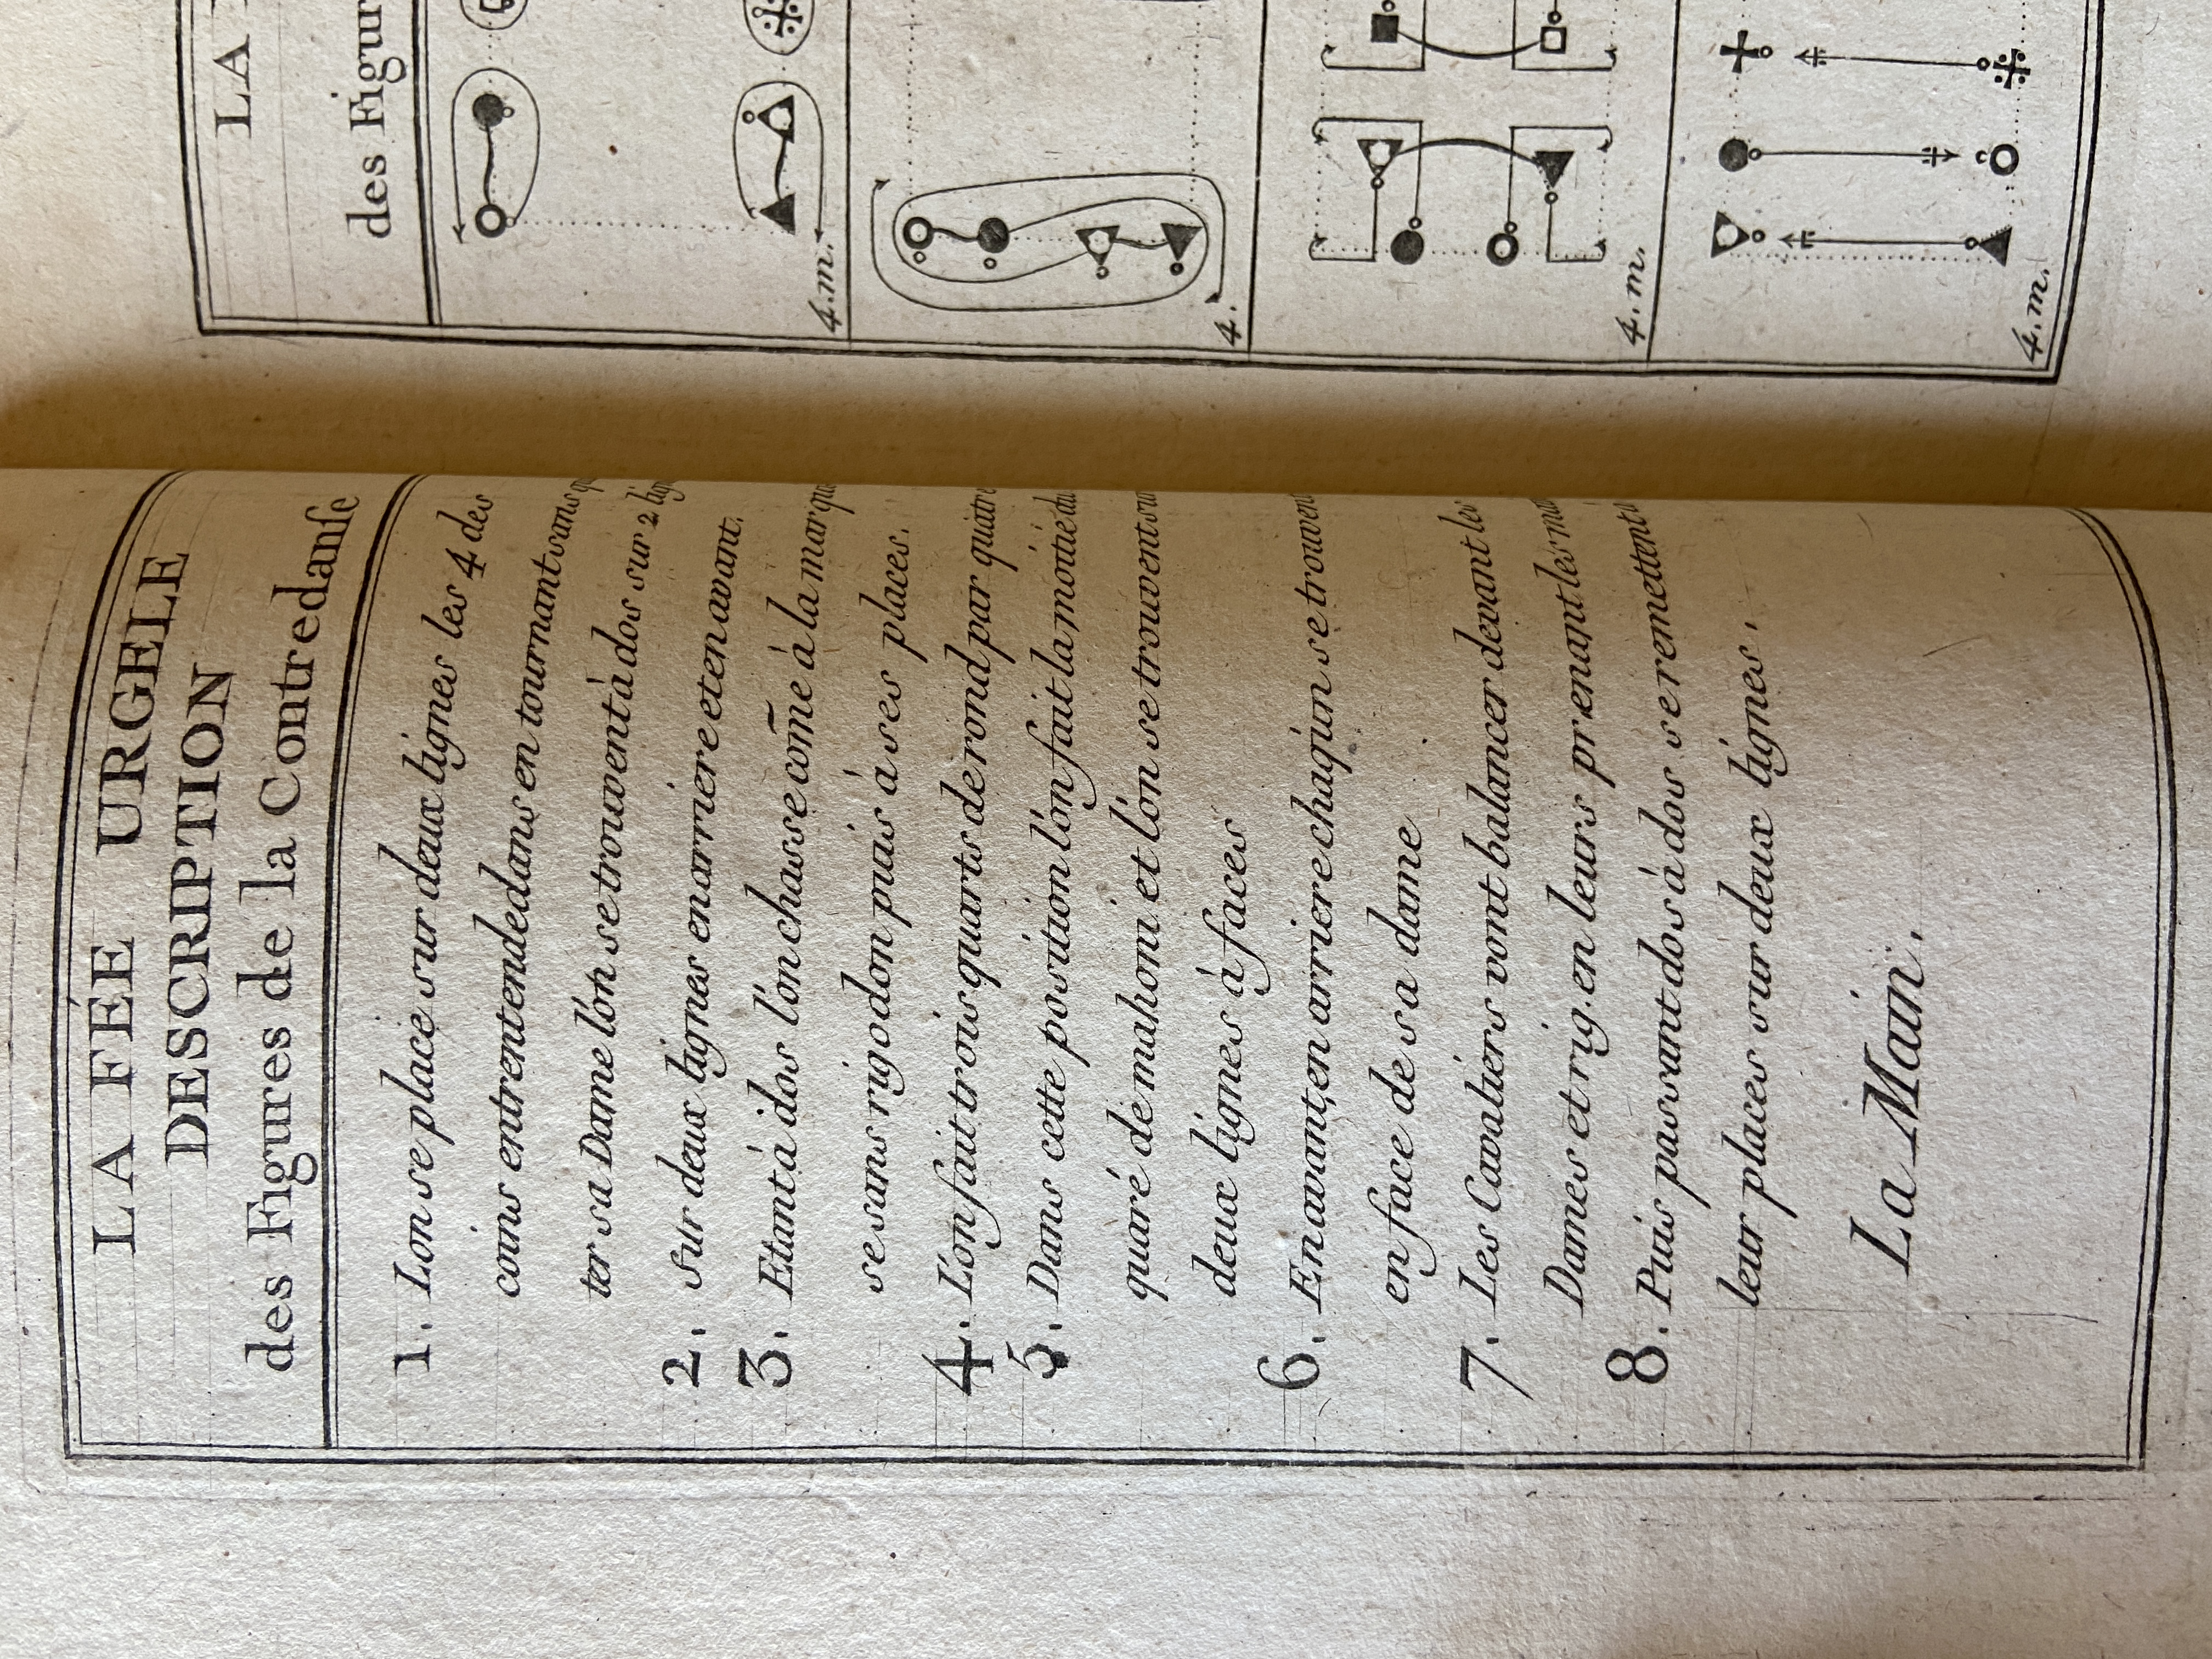 LA FÉE URGELE
DESCRIPTION
des Figures de la Contredanse
1. Lon se place sur deux lignes les 4 des
coins entrentendedans en tournant sans
ter sa Dame l'on se trouvent à dos sur 2
2. sur deux lignes en arriere et en avant.
3. Etant à dos l'on chasse com̄e à la
se sans rigodon puis à ses places.
4. L'on fait trois quarts de rond par quatre
5. Dans cette position l'on fait la moitié du
quaré de mahoni et l'on se trouvent sur
deux lignes à faces
6. En avant, en arriere chaqún se trouvent
en face de sa dame
7. Les Cavaliers vont balancer devant les
Dames et rig. en leurs prenant les
8. Puis passant dos à dos se remettent
leur places sur deux lignes.
La Main.
LA
des Figur
4. m.
4.
4. m.
4. m.